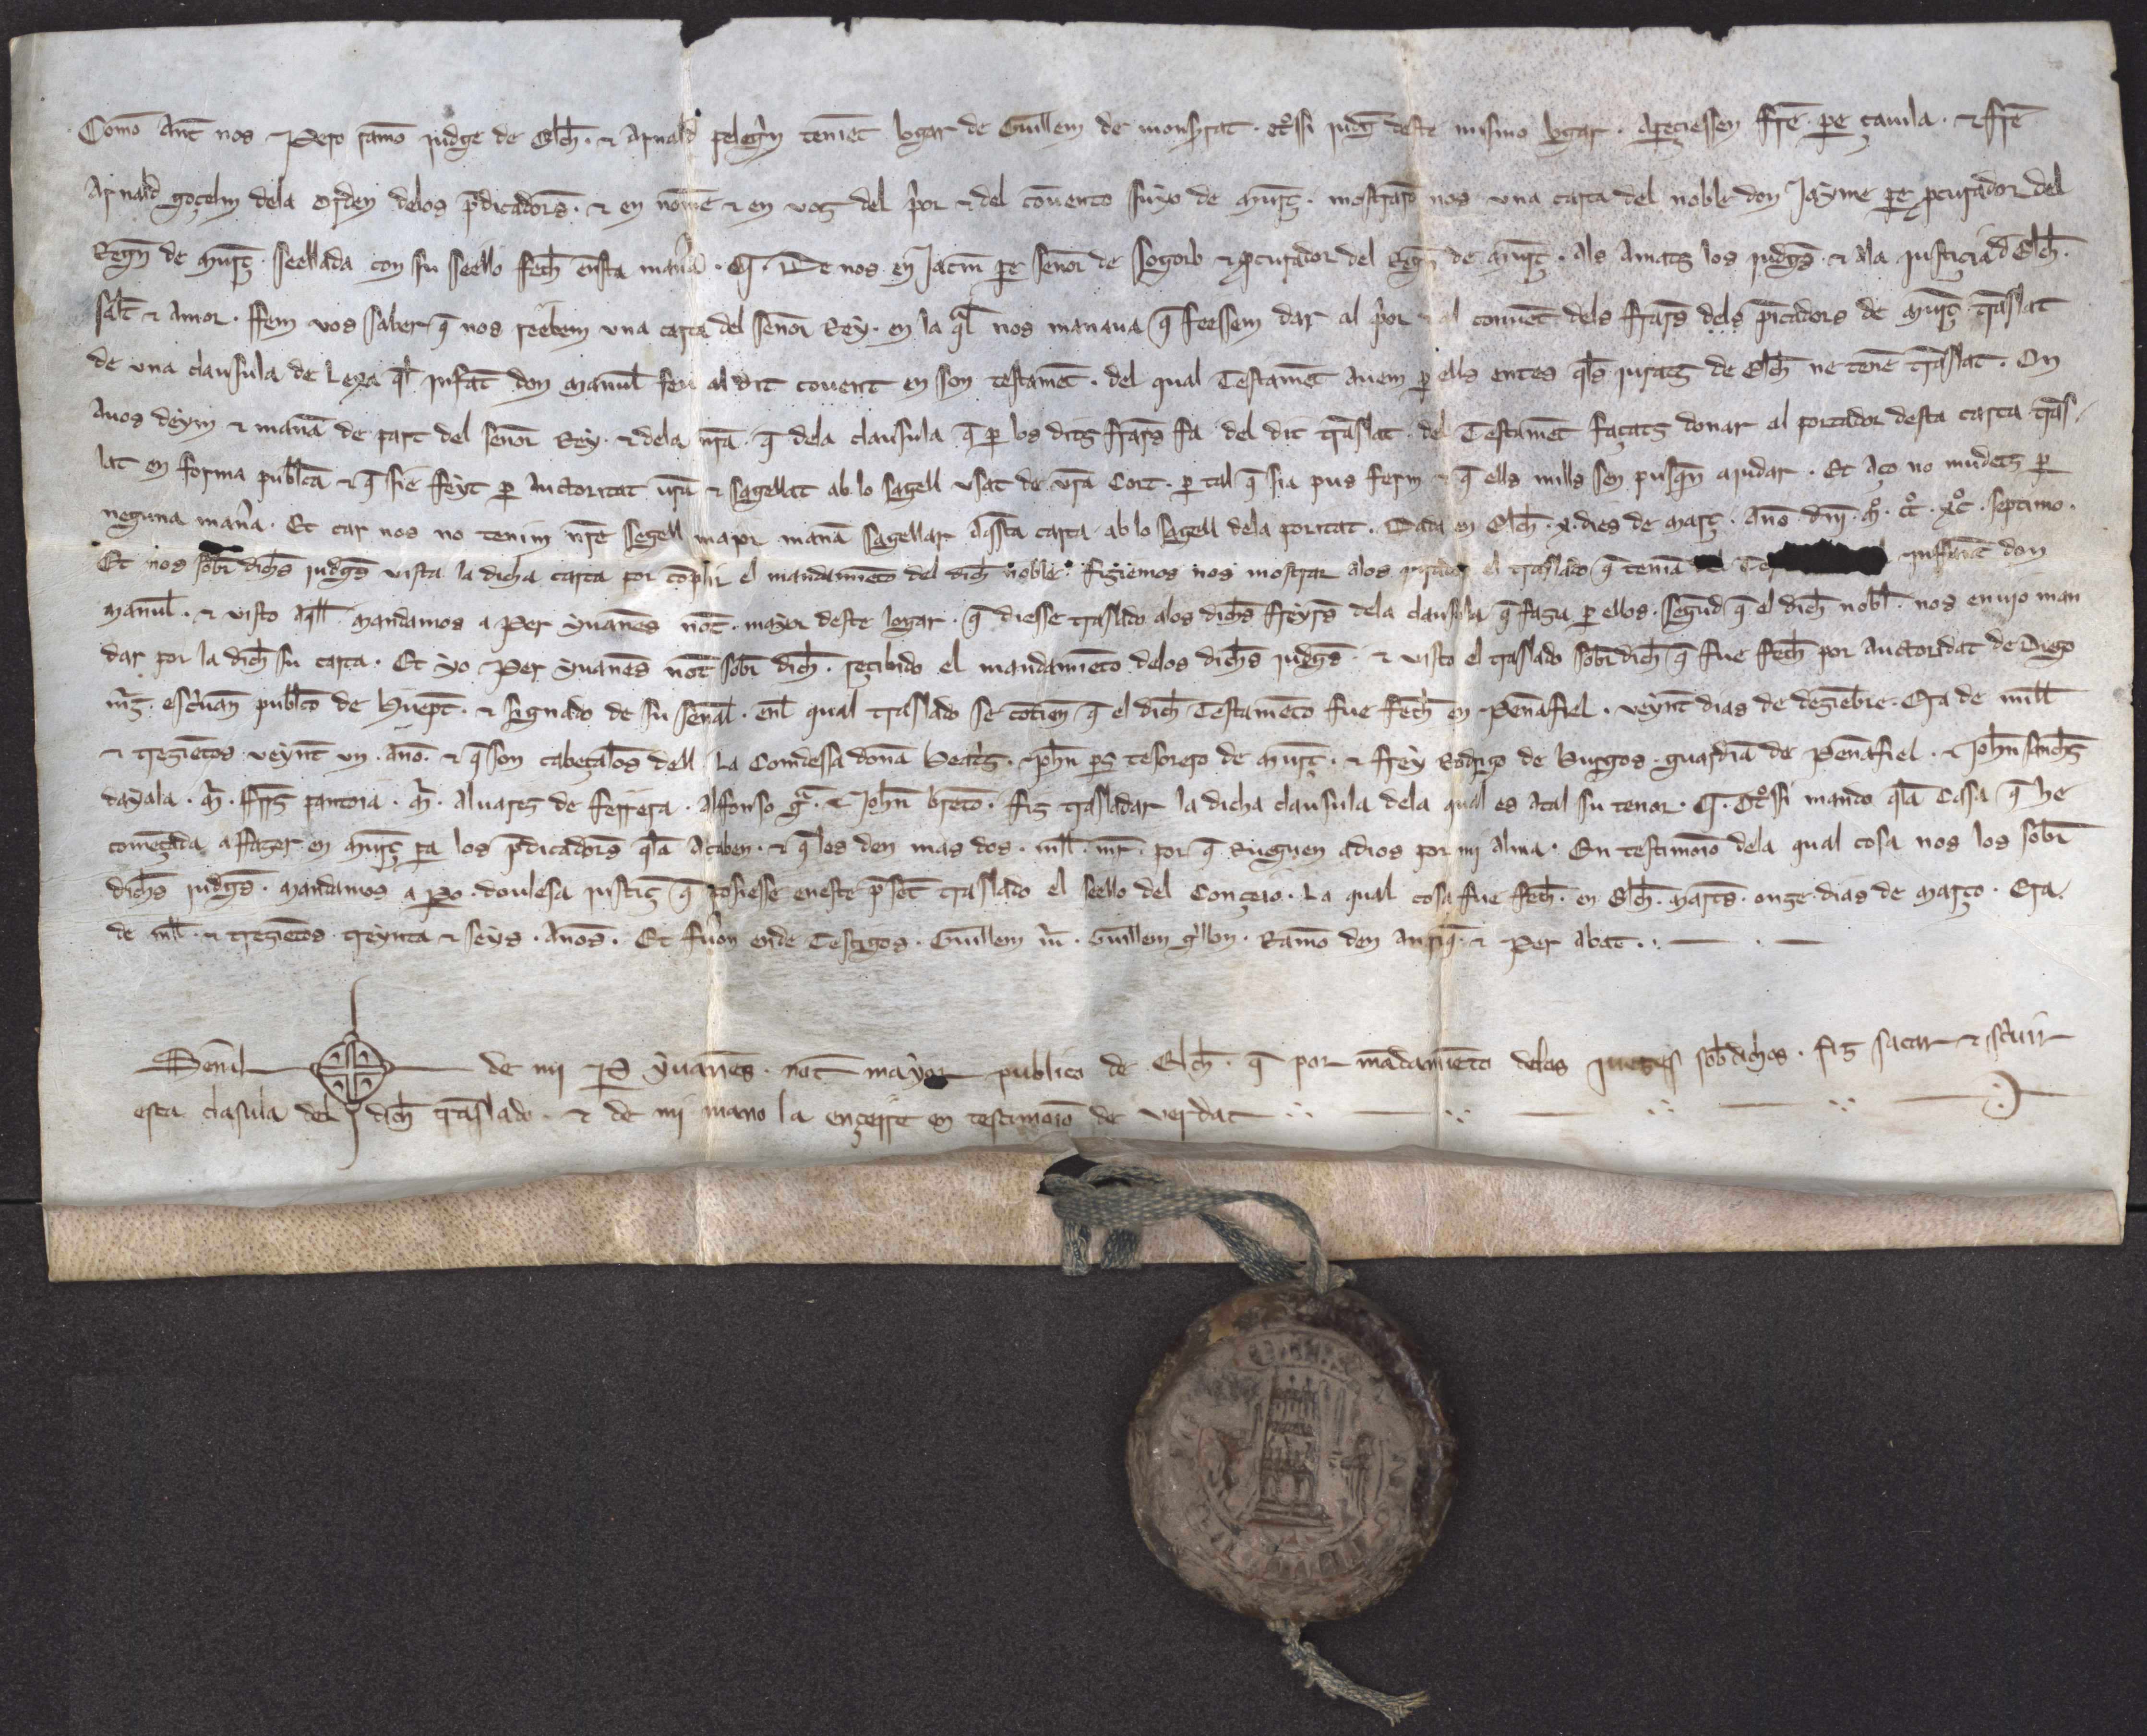 Como ant nos Pero ramō judge de Elch̄ · ⁊ Arnald pelegⁱn teniēt logar de Guillem de monsrat · otᵒssi judḡ deste mismo logar · Apeçiessen ffrē · pe çauila · ⁊ ffrē
Arnald goçelm dela Orden delos p̄dicadors̄ · ⁊ en nōme ⁊ en voz del pⁱor ⁊ del cōuento suyo de Murç̄ · mostrarō nos una carta del noble don Jayme pe ꝓcurador del
Regn̄ de Murç̄ · seellada con su seello fech̄ ensta manⁱa · ¶ · De nos en Jacm̄ pe señor de Sogorb ⁊ ꝓcurador del Regn̄ de Murç̄ · Als Amats los judgs̄ · ⁊ Ala justicia d Elch̄ ·
salt̄ ⁊ Amor · ffem vos saber q̄ nos reebem una carta del señor Rey · en la qᵃl nos manaua q̄ feessem dar al pⁱor ⁊ al conuēt dels ffrars̄ dels p̄icadors de Murç̄ trāslat
de una clausula de Lexa ql̄ jnfāt don Manuel̄ feu al dit couent en son testamēt · del qual Testamēt Auem ꝑ ells entes qls̄ jurats de Elch̄ ne tenē trāslat · On
Auos deym ⁊ manā de part del señor Rey · ⁊ dela nr̄a · q̄ dela clausula q̄ ꝑ los dits ffrars̄ fa del dit trāslat · del Testamēt façats donar al portador desta carta trās-
lat en forma publ̄ca ⁊ q̄ sie ffeyt ꝑ Auctoritat ur̄a ⁊ sagellat ab lo sagell usat de ur̄a Cort · ꝑ tal q̄ sia pus ferm ⁊ q̄ ells mills sen pusq̄n ajudar · Et Aço no mudets ꝑ
neguna manⁱa · Et car nos no tenim nr̄e segell major manā sagellar Aqsta carta ab lo sagell dela poritat · Dada en Elch̄ · x · dies de março · Anō · dn̄i · Mᵒ · ccᵒ · xcᵒ · septimo ·
Et nos sobr̄ dichs̄ judgs̄ vista la dicha carta por cōplir el mandamiēto del dich̄ noble · fiziemos nos mostrar alos jurados el traslado q̄ teniā jnfante don
Manuel̄ · ⁊ visto Aqll̄ · mandamos a Per yuanes not̄ · mayor deste logar · q̄ diesse traslado alos dichs̄ ffreyrs̄ dela clausula q̄ fazia ꝑ ellos · segūd q̄ el dich̄ nobl̄ · nos enujo man
dar por la dich̄ su carta · Et yo Per yuanes not̄ sobr̄ dich̄ · reçibido el mandamiēto delos dichs̄ judgs̄ · ⁊ visto el traslado sobr̄ dich̄ q̄ fue fech̄ por Auctoridat de Diego
mr̄z · escⁱuan̄ publ̄co de huept̄ · ⁊ signado de su señal · enl̄ qual traslado se cōtien̄ q̄ el dich̄ Testamēto fue fech̄ en Peñafiel · veynt̄ dias de deziēbre · Era de mill̄
⁊ treziētos · veynt̄ un · Año · ⁊ q̄ son cabeçalōs dell · La Comdessa doña Beatⁱs · john̄ ps̄ tesorero de Murç̄ · ⁊ ffrey Rodrigo de Burgos · guardiā de Peñafiel · ⁊ Johān sanchs̄
dayala · Mⁱ · ffrs̄ pantoia · Mⁱ · Aluarez de ferrera · Alfonso gᵃ · ⁊ Johān bretō · fiz trasladar la dicha clausula dela qual es Atal su tenor · ¶ · Otᵒssi mando qla Casa q̄ he
comēçada affazer en Murç̄ pa los p̄dicadors̄ qla Acaben · ⁊ q̄ les den mas dos · mll̄ · mr̄ · por q̄ Rueguen adios por mj alma · En testimoīo dela qual cosa nos los sobr̄
dichs̄ judgs̄ · mandamos a Po · doulesa justiç̄ q̄ posiesse eneste p̄sēt traslado el seello del Conçeio · La qual cosa fue fech̄ · en Elch̄ · marts̄ · onze dias de março · Era ·
de mll̄ · ⁊ treziētos · treynta ⁊ seys · Años · Et fuⁱon ende Testigos · Guillem · Guillem gⁱllon · Ramō den · ⁊ Per abat · :
Señal de mj P̄ yuanes · not̄ mayor publico de Elch̄ · q̄ por mādamiēto delos jueces sobr̄dichos · fiz sacar ⁊ scⁱuir
esta clasula del dich̄ trāslado · ⁊ de mj mano la ençerre en testimoīo de verdat